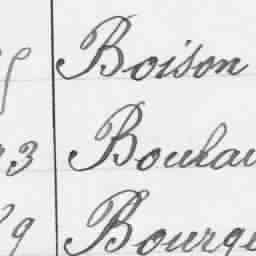 Boison
3 Boulau
9 Bourge